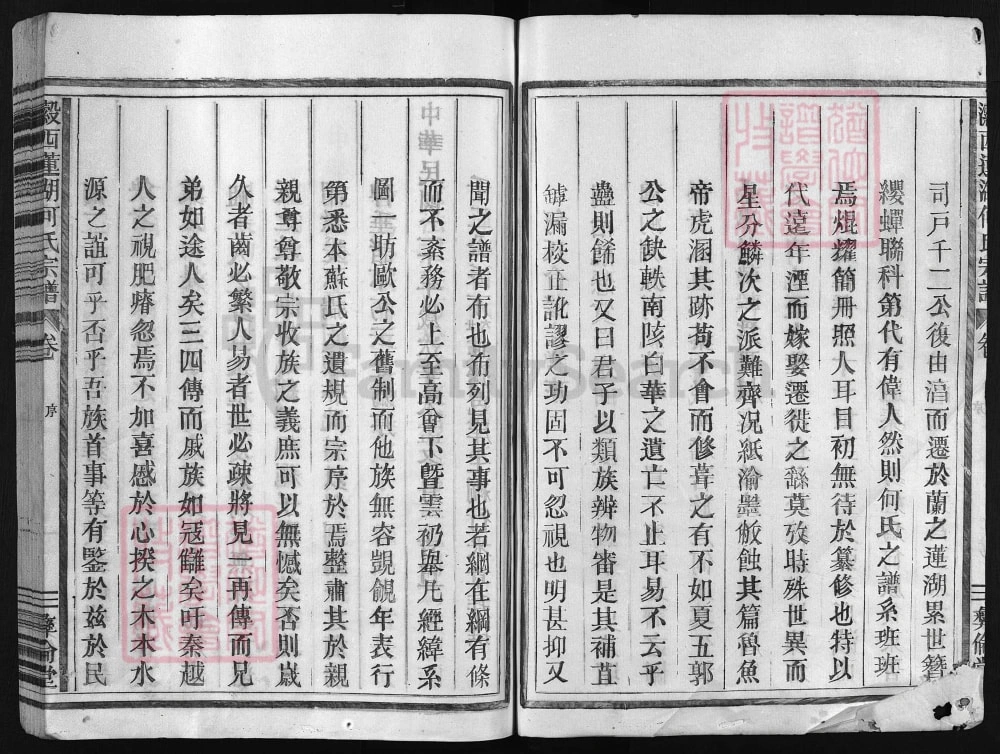 司戸千二公復由湻而遷於蘭之蓮湖累世簪
纓蟬聯科第代有偉人然則何氏之譜系班班
焉焜耀簡冊照人耳目初無待於纂修也特以
代遠年湮而嫁娶遷徙之繇莫攷時殊世異而
星分鱗次之派難齊况紙渝墨敝蝕其篇魯魚
帝虎溷其跡苟不會而修葺之有不如夏五郭
公之缺軼南陔白華之遺亡不止耳易不云乎
蠱則餙也又曰君子以類族辨物審是其補苴
罅漏校正訛謬之功固不可忽視也明甚抑又
聞之譜者布也布列見其事也若綱在綱有條
而不紊務必上至高曾下曁雲礽舉凡經緯系
圖一昉歐公之舊制而他族無容覬覦年表行
第悉本蘇氏之遺規而宗序於焉整肅其於親
親尊尊敬宗收族之義庶可以無憾矣否則嵗
久者齒必繁人易者世必疎將見一再傳而兄
弟如途人矣三四傳而戚族如冦讎矣吁秦越
人之視肥瘠忽焉不加喜慼於心揆之木本水
源之誼可乎否乎吾族首事等有鑒於兹於民
瀫西蓮湖何氏宗譜
卷
序
彝倫堂